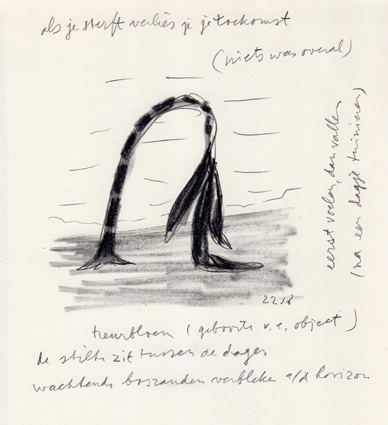 als je sterft verlies je je toekomst
(niets was overal)
eerst voelen, dan vallen
(na een dagje tuinieren)
22/2
treurbloem (geboorte v.e. object)
de stilte zit tussen de dagen
wachtende boszanden verbleken a/d horizon